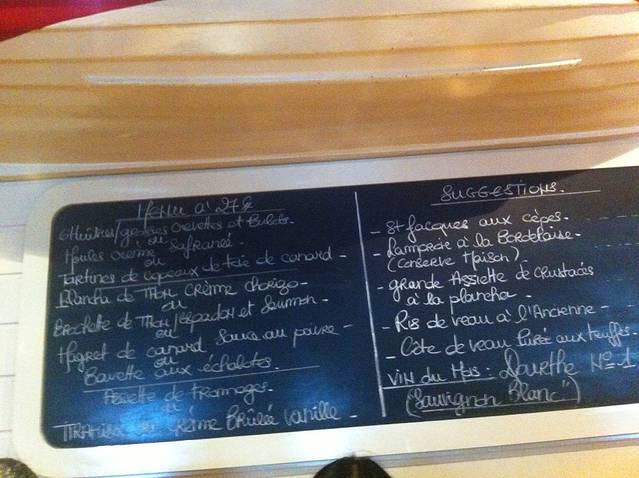 Menu à 27 €
6 Huîtres/grosses Crevettes et Bulots.
ou
Moules crème Safranée.
ou
Tartines de copeaux de foie de canard -
Plancha de Thon crème chorizo -
ou
Brochette de Thon/Espadon et Saumon -
ou
Magret de canard Sauce au poivre -
ou
Bavette aux échalotes.
Assiette de fromages.
ou
crème Brûlée Vanille -
SUGGESTIONS.
- St Jacques aux cèpes.
- Lamproie à la Bordelaise.
(Conserve Maison).
- grande Assiette de Crustacés
à la plancha.
- Ris de veau à l'Ancienne -
- Côte de veau Purée aux truffes.
VIN du Mois: Dourthe N° 1
(Sauvignon Blanc")